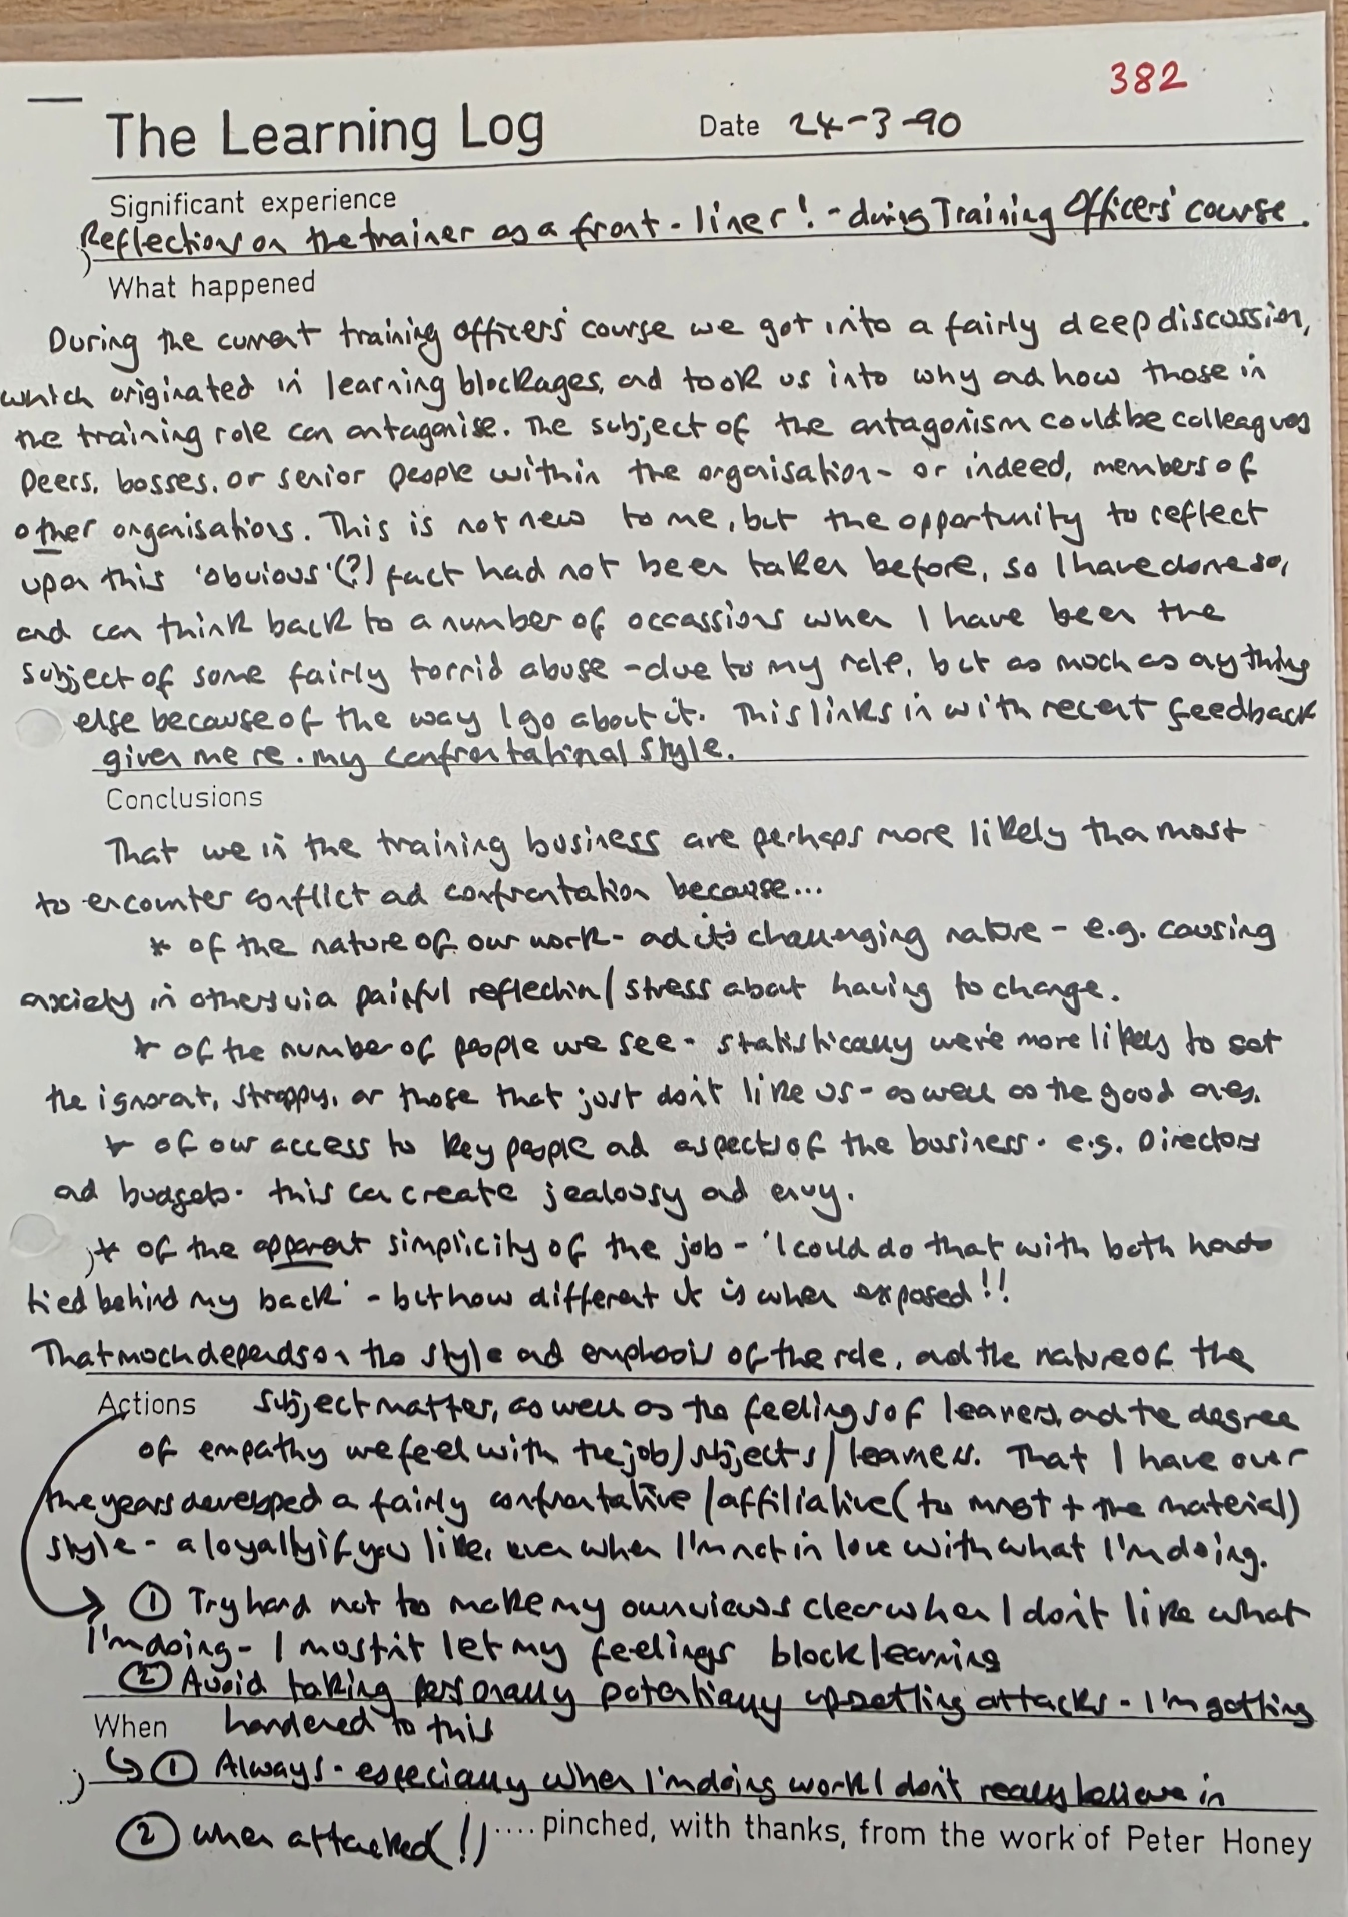 382
The Learning Log Date 24-3-90
Significant experience
Reflection on the trainer as a front-liner! - during Training Officers' course.
What happened
During the current training officers' course we got into a fairly deep discussion,
which originated in learning blockages, ad took us into why ad how those in
the training role can antagonise. The subject of the antagonism could be colleagues
peers, bosses, or senior people within the organisation - or indeed, members of
other organisations. This is not new to me, but the opportunity to reflect
upon this 'obvious'(?) fact had not been taken before, so I have done so,
and can think back to a number of occassions when I have been the
subject of some fairly torrid abuse - due to my role, but as much as anything
else because of the way I go about it. This links in with recent feedback
given me re. my confrontational style.
Conclusions
That we in the training business are perhaps more likely tha most
to encounter conflict ad confrontation because...
* of the nature of our work - ad it's challenging nature - e.g. causing
anxiety in others via painful reflection/stress about having to change.
* of the number of people we see - statistically we're more likely to get
the ignorant, stroppy, or those that just don't like us - as well as the good ones.
* of our access to key people ad aspects of the business. e.g. Directors
ad budgets. this can create jealousy ad envy.
* of the apparent simplicity of the job - 'I could do that with both hands
tied behind my back' - but how different it is when exposed!!
That much depends on the style ad emphasis of the role, ad the nature of the
Actions subject matter, as well as the feelings of learners, ad the degree
of empathy we feel with the job/subjects/learners. That I have over
the years developed a fairly confrontative/affiliative (to most + the material)
style - a loyalty if you like, even when I'm not in love with what I'm doing.
① Try hard not to make my own views clear when I don't like what
I'm doing - I mustn't let my feelings block learning
② Avoid taking personally potentially upsetting attacks - I'm getting
When hardened to this
① Always - especially when I'm doing work I don't really believe in
② when attacked(!) .... pinched, with thanks, from the work of Peter Honey